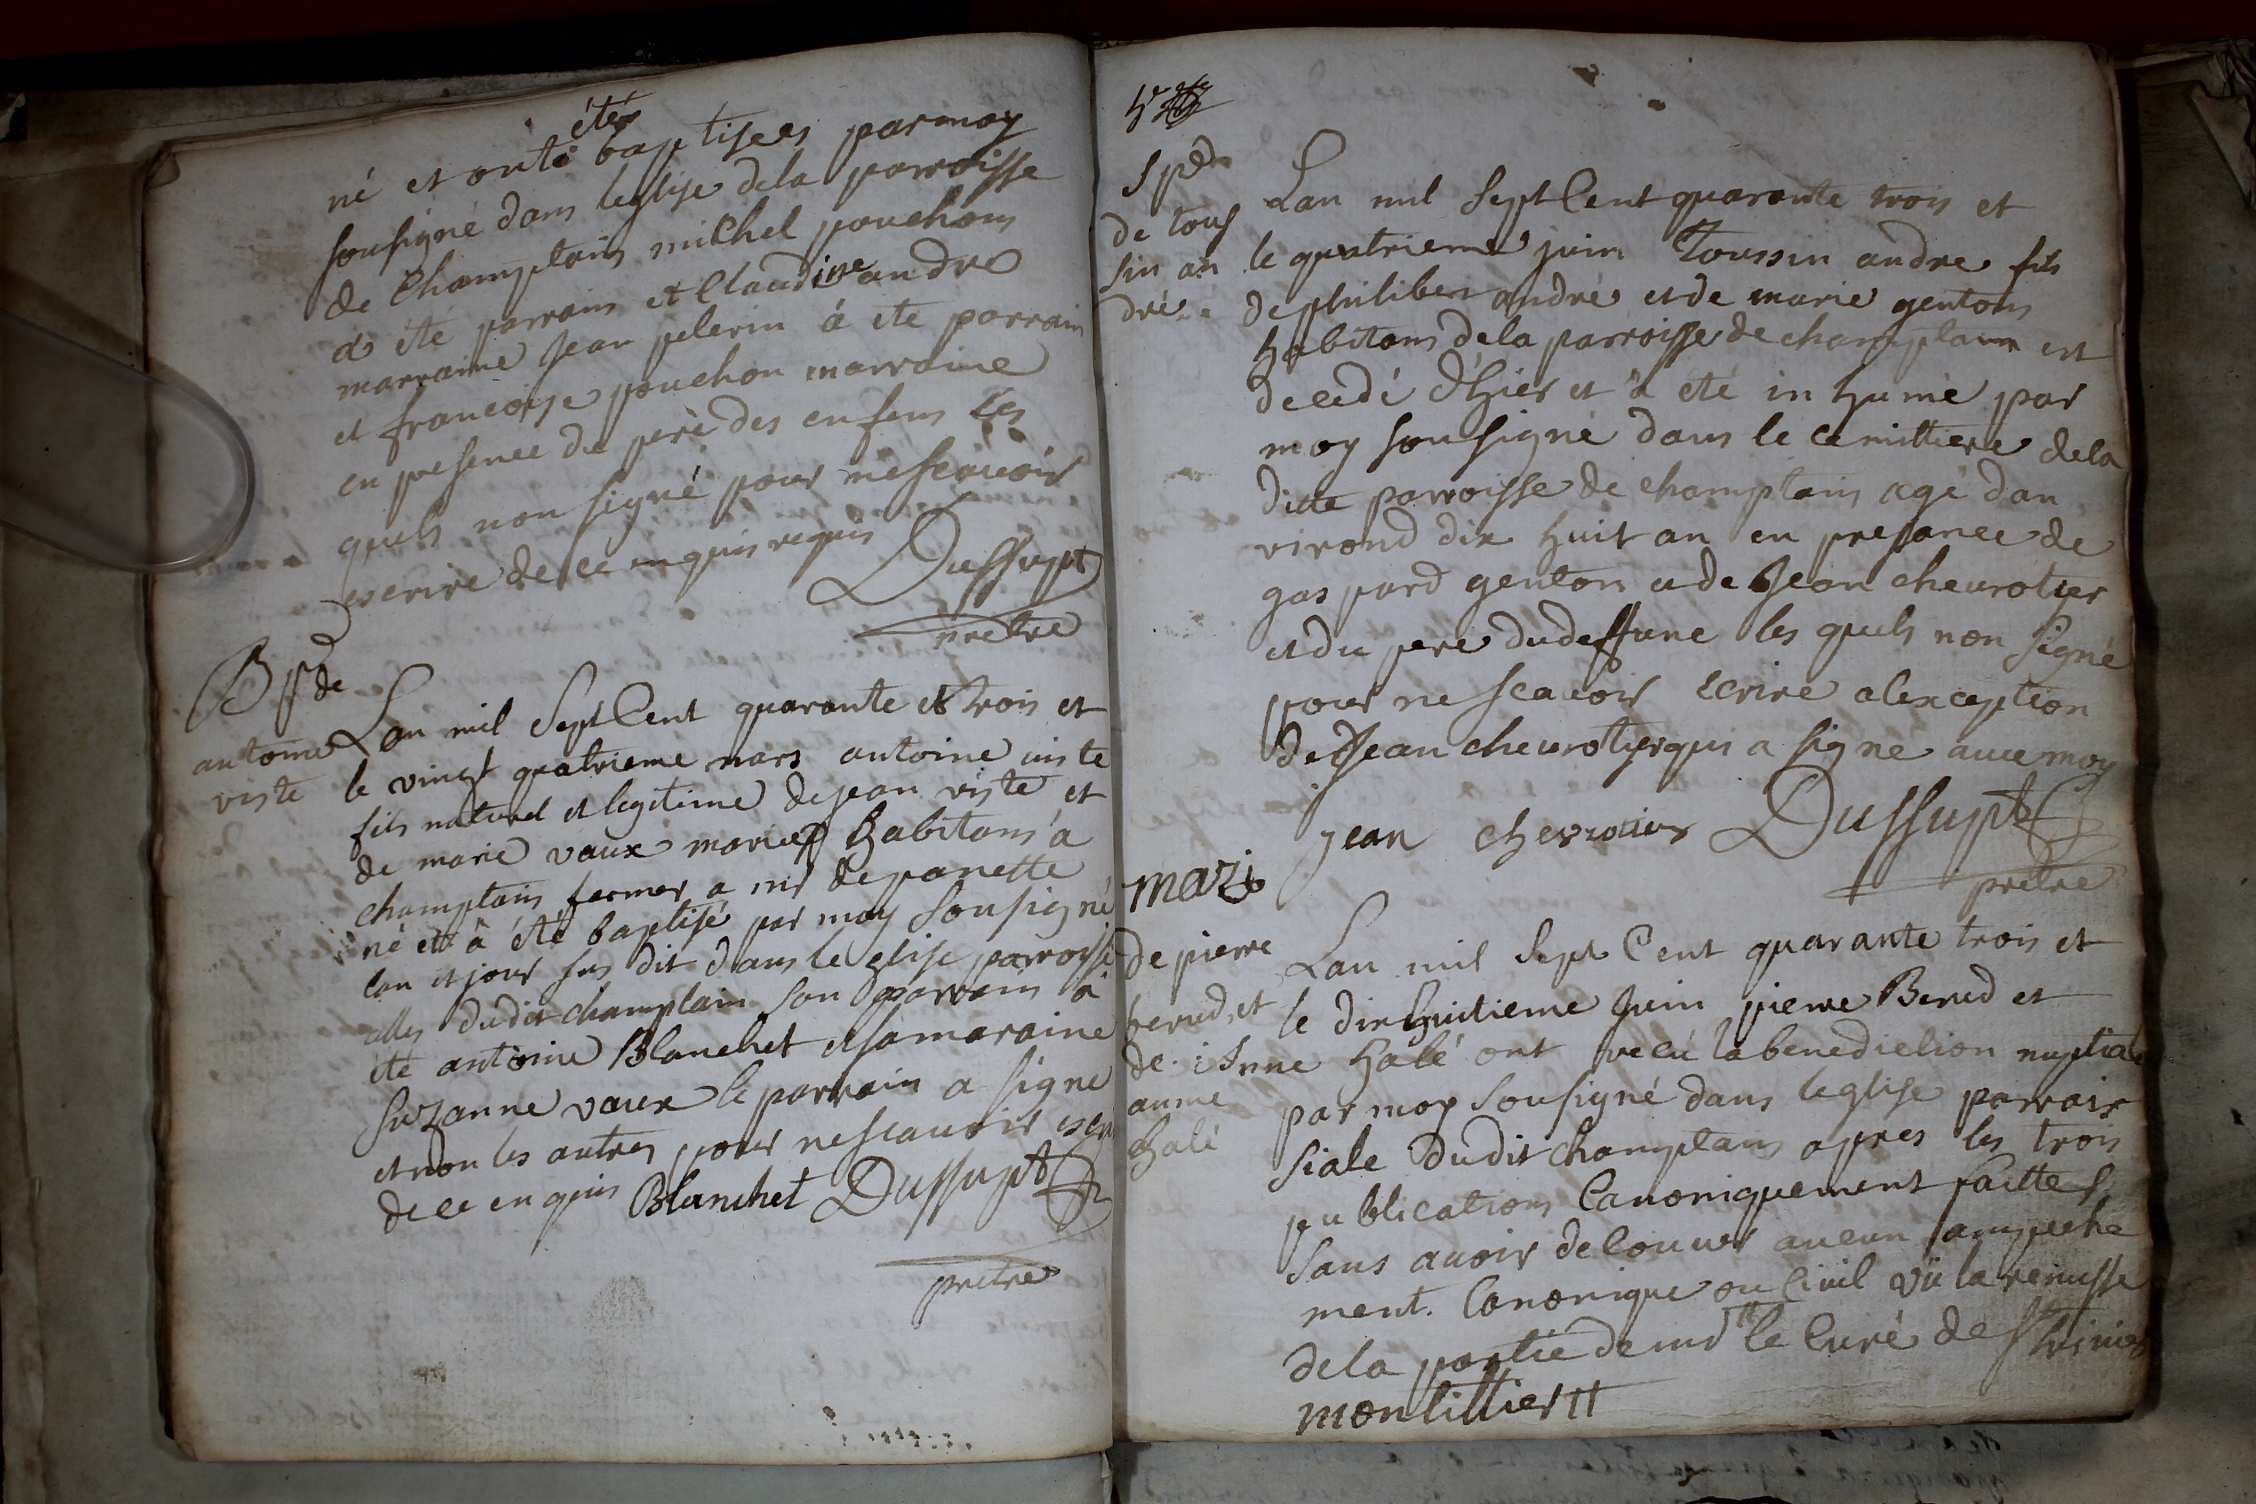 étés
né et onté baptisees par moy
sousigné dans leglise dela parroisse
de Champlain michel pouchons
a été parrains et Claudine andre
marraine jean pelerin á ete parrain
et francoise pouchon marraine
en presence du perè des enfens les
quels non signé pour nescavoir
escrire de ce enquis requis
Dussupt
pretre
Bp de
antoine
viste
Lan mil Sept Cent quarante et trois et
le vingt quatrieme mars antoine viste
fils naturel et legitime de jean viste et
de marie vaux mariés habitans a
champlain fermer a mr de panette
né et à été baptisé par moy sousigné
lan et jour sus dit dans leglise parroissi
alle dudit champlain son parrain à
ete antoine Blanchet et sa maraine
Suzanne vaux le parrain a signe
et non les autres pour nescavoir escri
de ce enquis Blanchet Dussupt
pretre
Sp de
de tous
sin an
dré
Lan mil Sept Cent quarante trois et
le quatrieme juin Toussin andre fils
de philibert andré et de marie gentons
habitans dela parroisse de champlain est
decedé d'hier et à eté in humé par
moy sousigné dans le cemittiere dela
ditte parroisse de champlain agé dan
virond dix huit an en presance de
gaspard genton et de jean chevrotier
et du pere du deffune les quels non signé
pour ne scavoir Ecrire alexception
de jean chevrotier qui a signé avec moy
jean chevrotier Dussupt
pretre
mari
de pierre
berud et
de
anne
halé
Lan mil Sept Cent quarante trois et
le dix huitieme juin pierre Berud et
Anne halé ont recu la benediction nuptiale
par moy sousigné dans leglise parrois
siale dudit champlain apres les trois
publications Canoniquement faittes
sans avoir decouver aucun ampeche
ment. Canonique ou Civil vü la remisse
dela partie de mr le Curé de St trivier